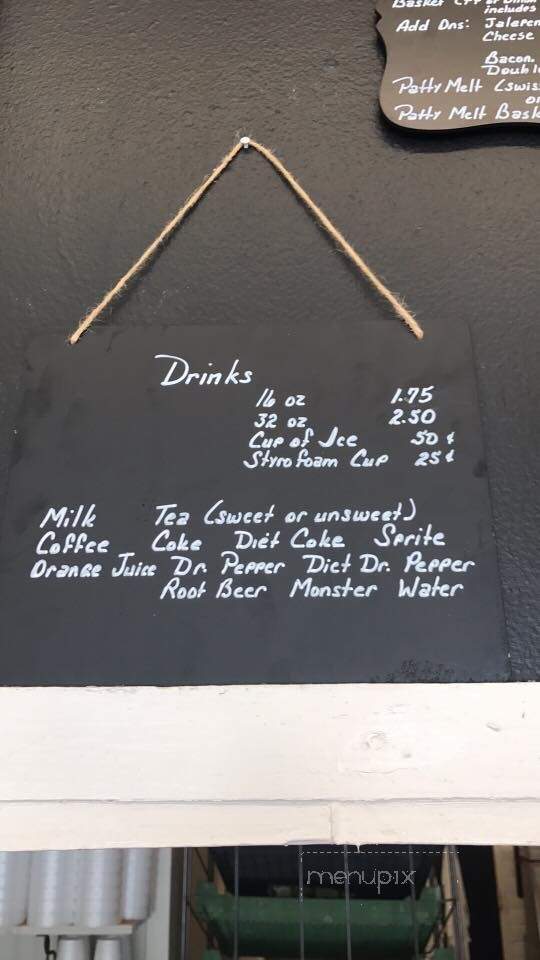 includes
Add Ons: Jalapen
Cheese
Bacon.
Doubl
Patty Melt (swis
Patty Melt Bask
Drinks
16 oz 1.75
32 oz 2.50
Cup of Ice 50 ¢
Styrofoam Cup 25 ¢
Milk Tea (sweet or unsweet)
Coffee Coke Diet Coke Sprite
Orange Juice Dr. Pepper Diet Dr. Pepper
Root Beer Monster Water
menupix